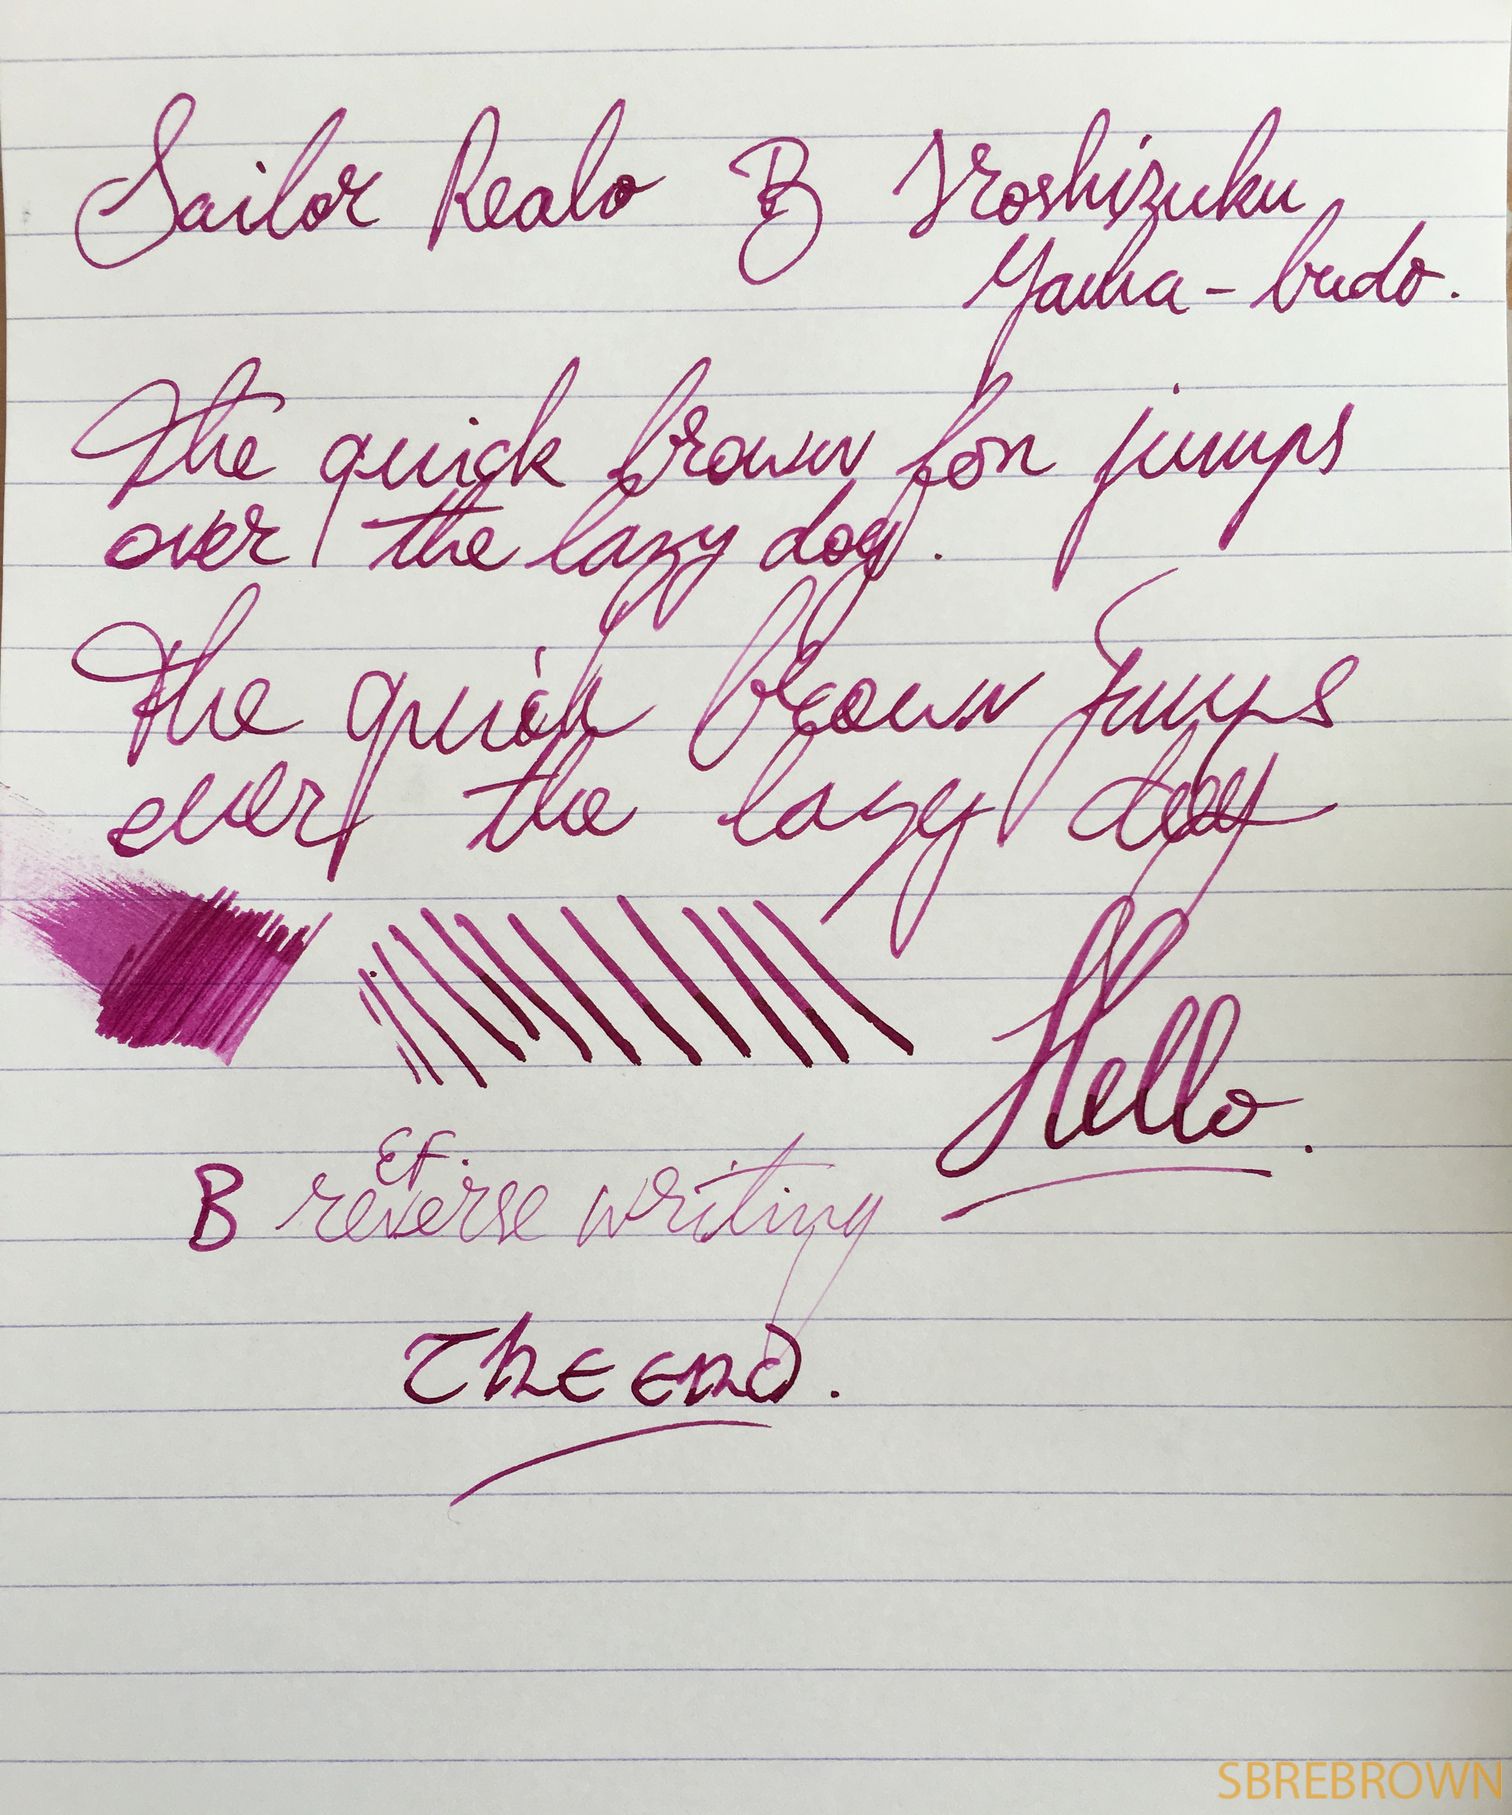 Sailor Realo B Iroshizuku
Yama-budo.
The quick brown fox jumps
over the lazy dog.
The quick brown jumps
over the lazy dog
Hello.
EF.
B reverse writing
The end.
SBREBROWN